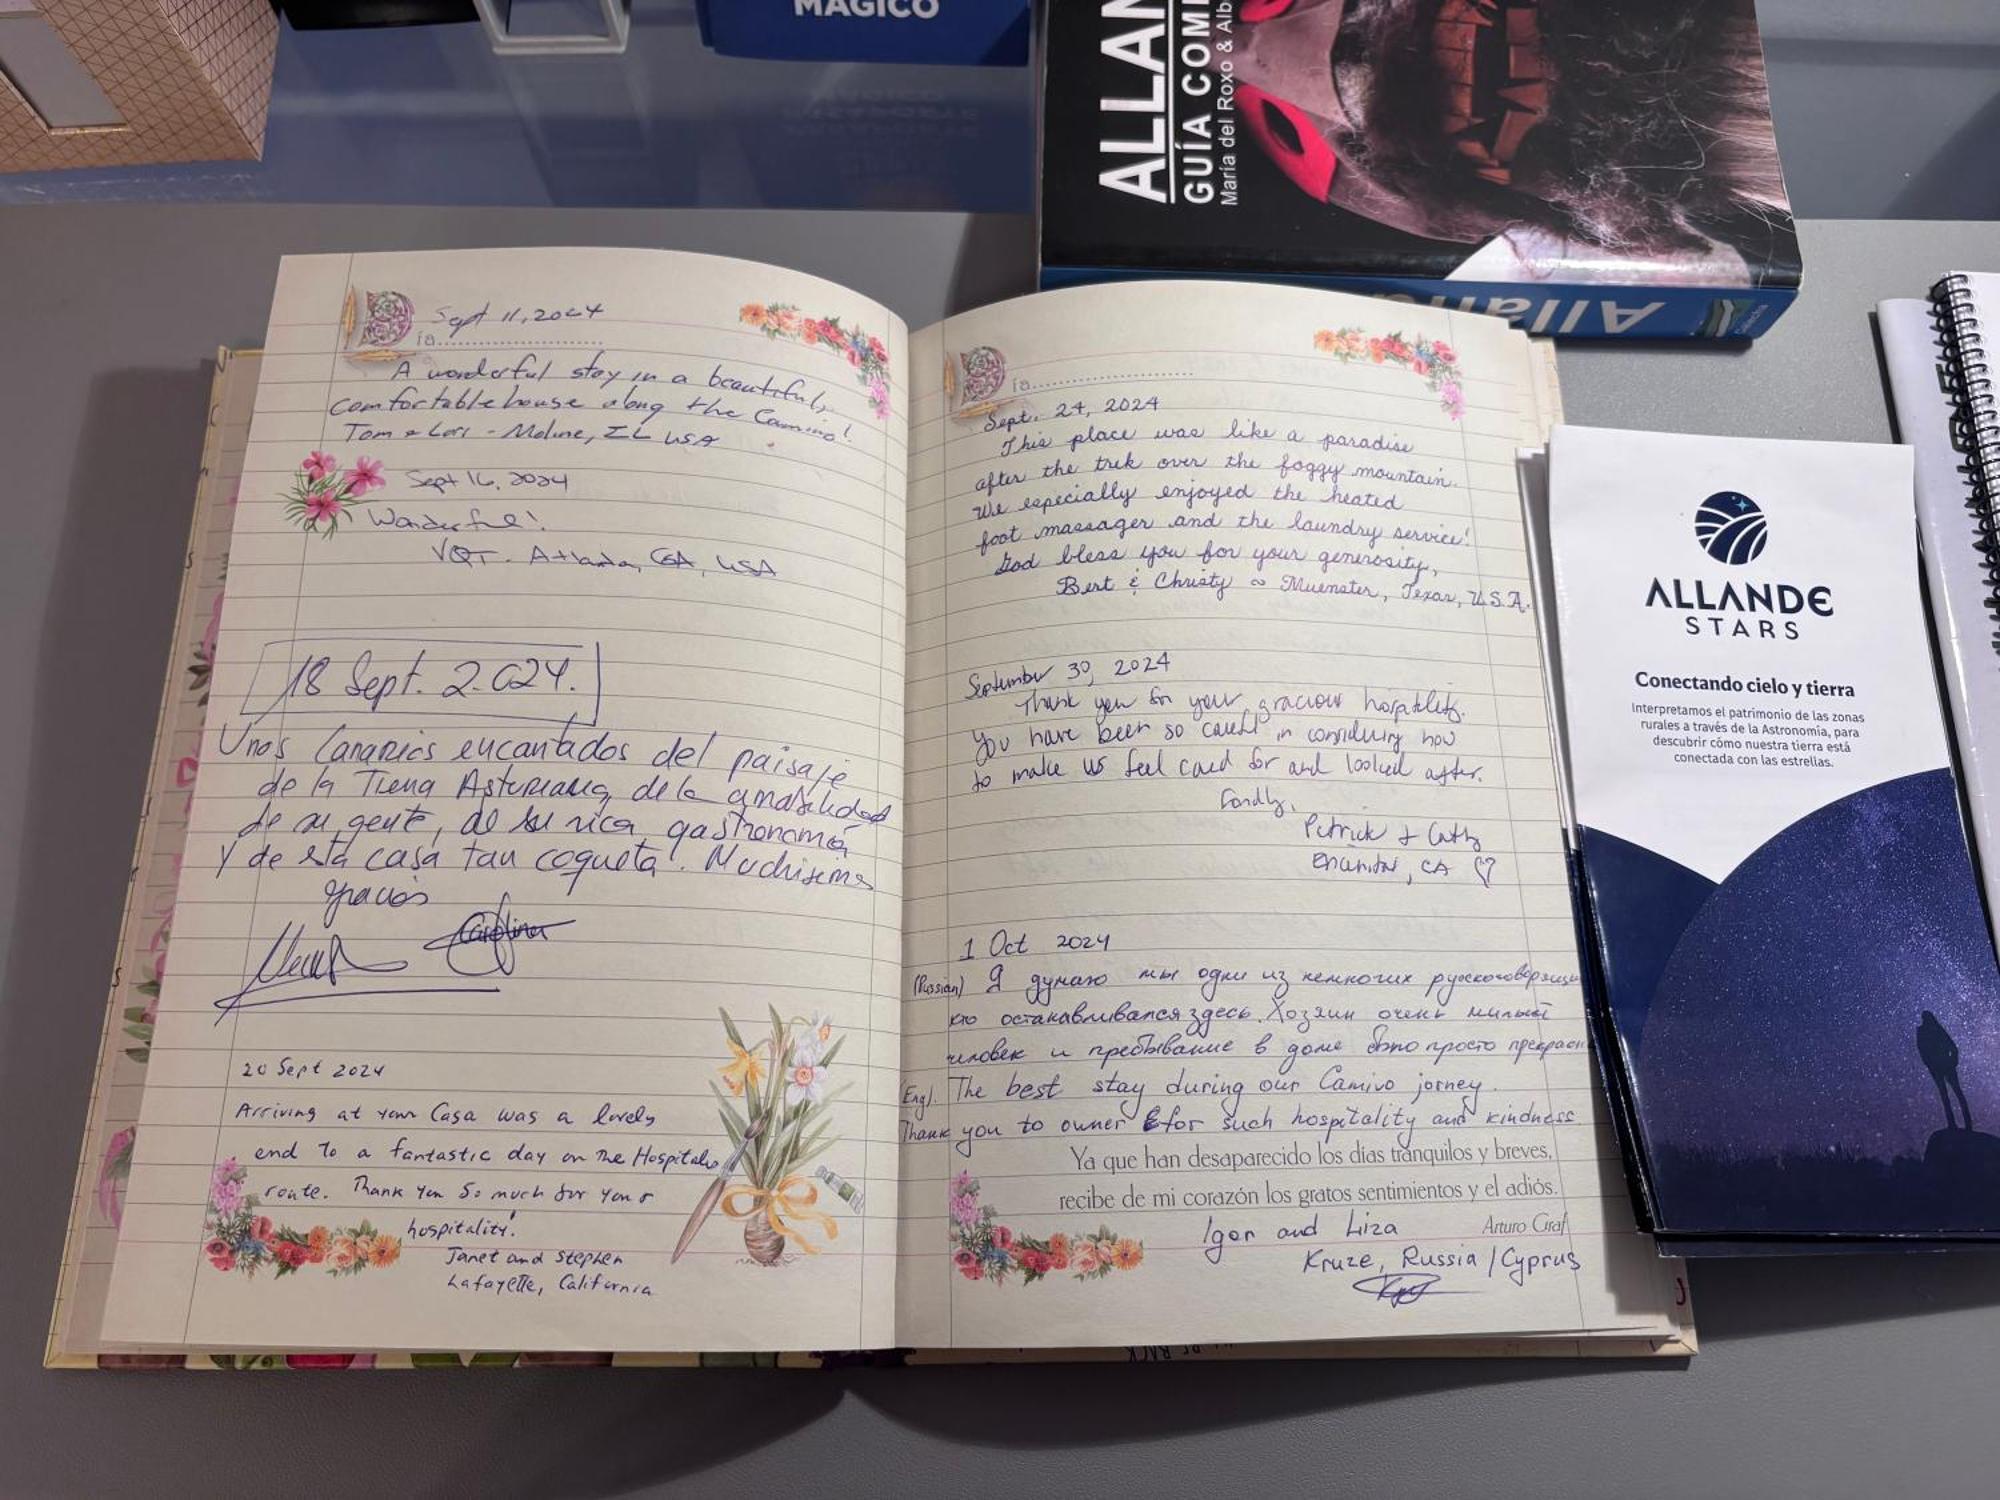 MÁGICO
ALLAN
GUÍA COM
María del Roxo & Alb
Sept 11, 2024
ía
A wonderful stay in a beautiful,
comfortable house along the Camino!
Tom & Lori - Moline, IL USA
Sept 16, 2024
Wonderful!
VQT - Atlanta, GA, USA
18 Sept. 2.024.
Unos Canarios encantados del paisaje
de la Tierra Asturiana, de la amabilidad
de su gente, de su rica gastronomía
y de esta casa tan coqueta. Muchísimas
gracias
Carolina
20 Sept 2024
Arriving at your Casa was a lovely
end to a fantastic day on the Hospitales
route. Thank you so much for your
hospitality!
Janet and Stephen
Lafayette, California
ía
Sept. 24, 2024
This place was like a paradise
after the trek over the foggy mountain.
We especially enjoyed the heated
foot massager and the laundry service!
God bless you for your generosity,
Bert & Christy ~ Muenster, Texas, U.S.A.
September 30, 2024
Thank you for your gracious hospitality.
You have been so careful in considering how
to make us feel cared for and looked after.
Fondly,
Patrick & Cathy
Encinitas, CA
1 Oct 2024
(Russian) Я думаю мы одни из немногих русскоговорящих
кто останавливался здесь. Хозяин очень милый
человек и пребывание в доме было просто прекрасн
(Engl). The best stay during our Camino jorney.
Thank you to owner for such hospitality and kindness
Ya que han desaparecido los días tranquilos y breves,
recibe de mi corazón los gratos sentimientos y el adiós.
Arturo Graf
Igor and Liza
Kruze, Russia / Cyprus
ALLANDE
STARS
Conectando cielo y tierra
Interpretamos el patrimonio de las zonas
rurales a través de la Astronomía, para
descubrir cómo nuestra tierra está
conectada con las estrellas.